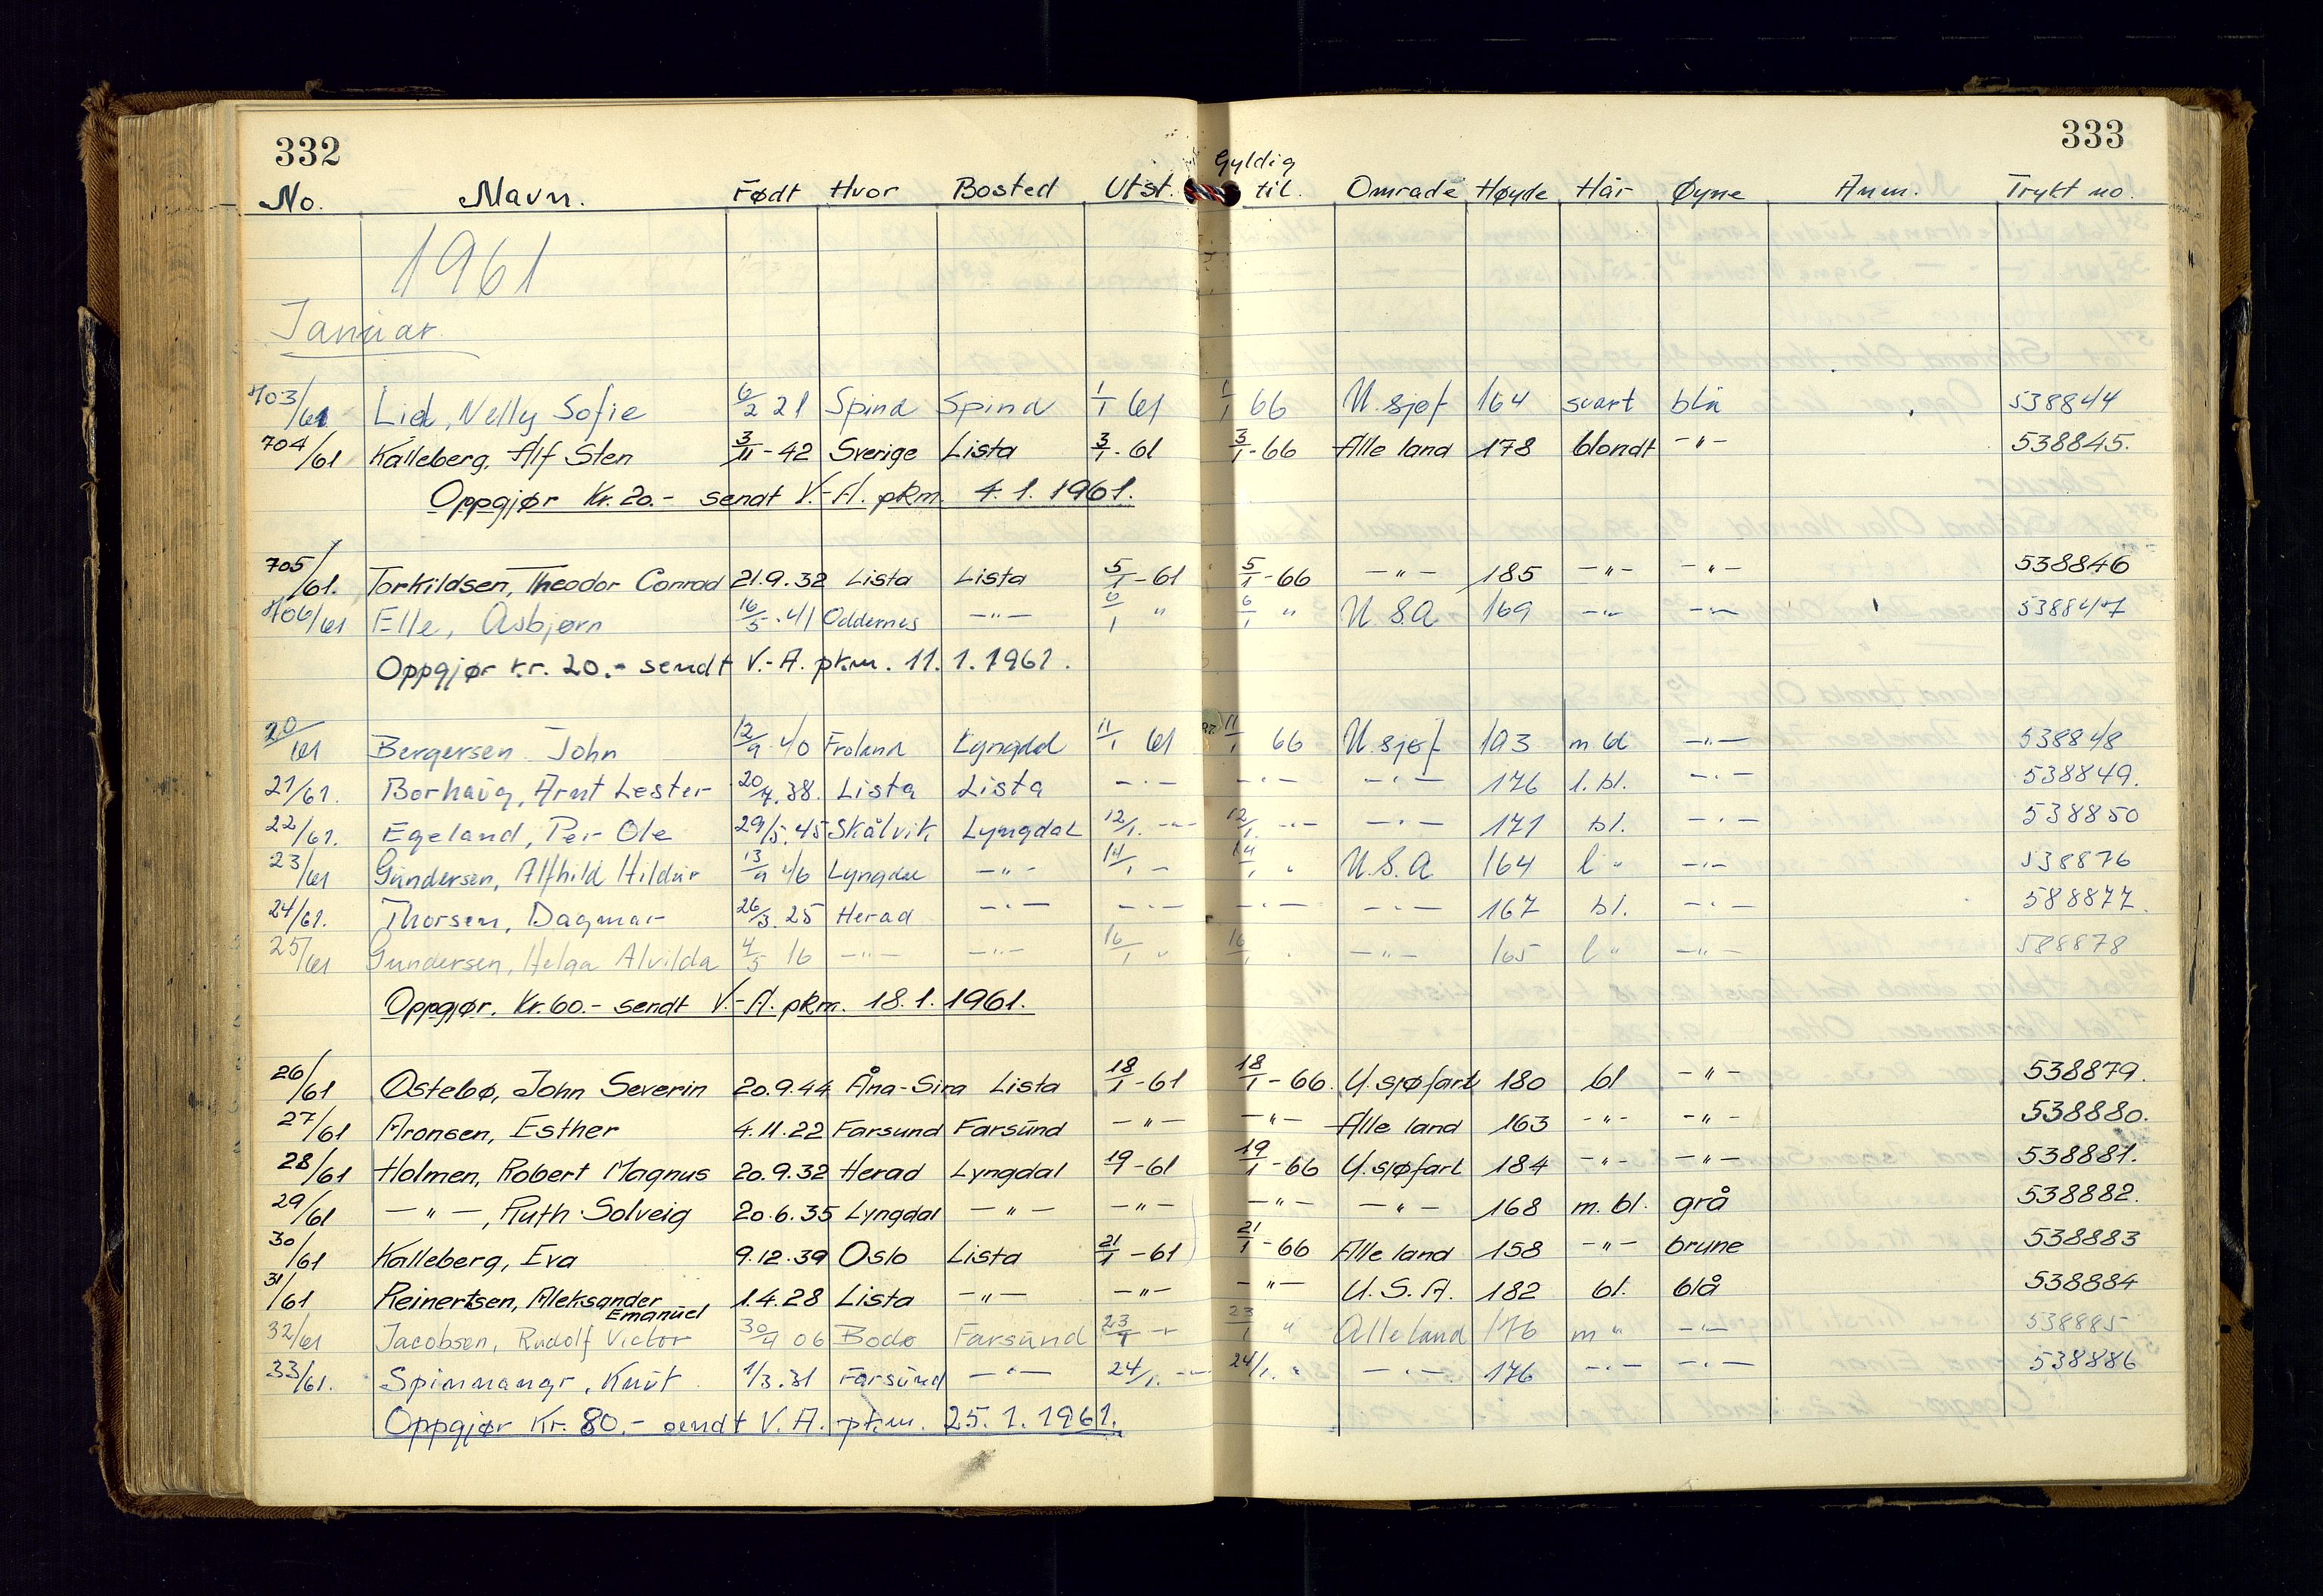 332 333
No. Navn. Født Hvor Bosted Utst. Gyldig til. Område Høyde Hår Øyne Anm. Trykt no.
1961
Januar
703/61 Lied, Nelly Sofie 6/2 21 Spind Spind 1/1 61 1/1 66 U. sjøf 164 svart blå 538844
704/61 Kalleberg, Alf Sten 3/11-42 Sverige Lista 3/1-61 3/1-66 Alle land 178 blondt -"- 538845.
Oppgjør Kr. 20.- sendt V.-A. pkm. 4.1.1961.
705/61. Torkildsen, Theodor Conrad 21.9.32 Lista Lista 5/1-61 5/1-66 -"- 185 -"- -"- 538846
706/61 Elle, Asbjørn 16/5.41 Oddernes -"- 6/1 " 6/1 " U.S.A 169 -"- -"- 538847
Oppgjør kr. 20.- sendt V.-A. pkm. 11.1.1961.
20/61 Bergersen John 12/9 40 Froland Lyngdal 11/1 61 11/1 66 U. sjøf 193 m bl -"- 538848
21/61. Borhaug, Arnt Lester 20/7.38. Lista Lista -"- -"- -"- 176 l. bl. -"- 538849.
22/61. Egeland, Per Ole 29/5.45 Skålvik Lyngdal 12/1. -"- 12/1. -"- -"- 171 bl. -"- 538850
23/61 Gundersen, Alfhild Hildur 13/9 46 Lyngdal -"- 14/1 - 14/1 " U.S.A 164 l " -"- 538876
24/61. Thorsen, Dagmar 26/3.25 Herad -"- -"- -"- -"- 167 bl. -"- 588877.
25/61 Gundersen, Helga Alvilda 4/5 16 -"- -"- 16/1 " 16/1 " -"- 165 l " -"- 588878
Oppgjør. Kr. 60.- sendt V.-A. pkm. 18.1.1961.
26/61 Ostebø, John Severin 20.9.44 Åna-Sira Lista 18/1-61 18/1-66. U. sjøfart 180 bl -"- 538879.
27/61 Aronsen, Esther 4.11.22 Farsund Farsund -"- -"- Alle land 163 -"- -"- 538880.
28/61 Holmen, Robert Magnus 20.9.32 Herad Lyngdal 19-61 19/1-66 U. sjøfart 184 -"- -"- 538881.
29/61 -"-, Ruth Solveig 20.6.35 Lyngdal -"- -"- -"- -"- 168 m. bl. grå 538882.
30/61 Kalleberg, Eva 9.12.39 Oslo Lista 21/1-61 21/1-66 Alle land 158 -"- brune 538883
31/61 Reinertsen, Aleksander Emanuel 1.4.28 Lista -"- -"- -"- U.S.A. 182 bl. blå 538884
32/61 Jacobsen, Rudolf Victor 30/9 06 Bodø Farsund 23/1 -"- 23/1 " Alle land 176 m " -"- 538885
33/61. Spinnangr, Knut 1/3.31 Farsund -"- 24/1. -"- 24/1. " -"- 176 -"- -"- 538886
Oppgjør Kr. 80.- sendt V.A. pkm. 25.1.1961.